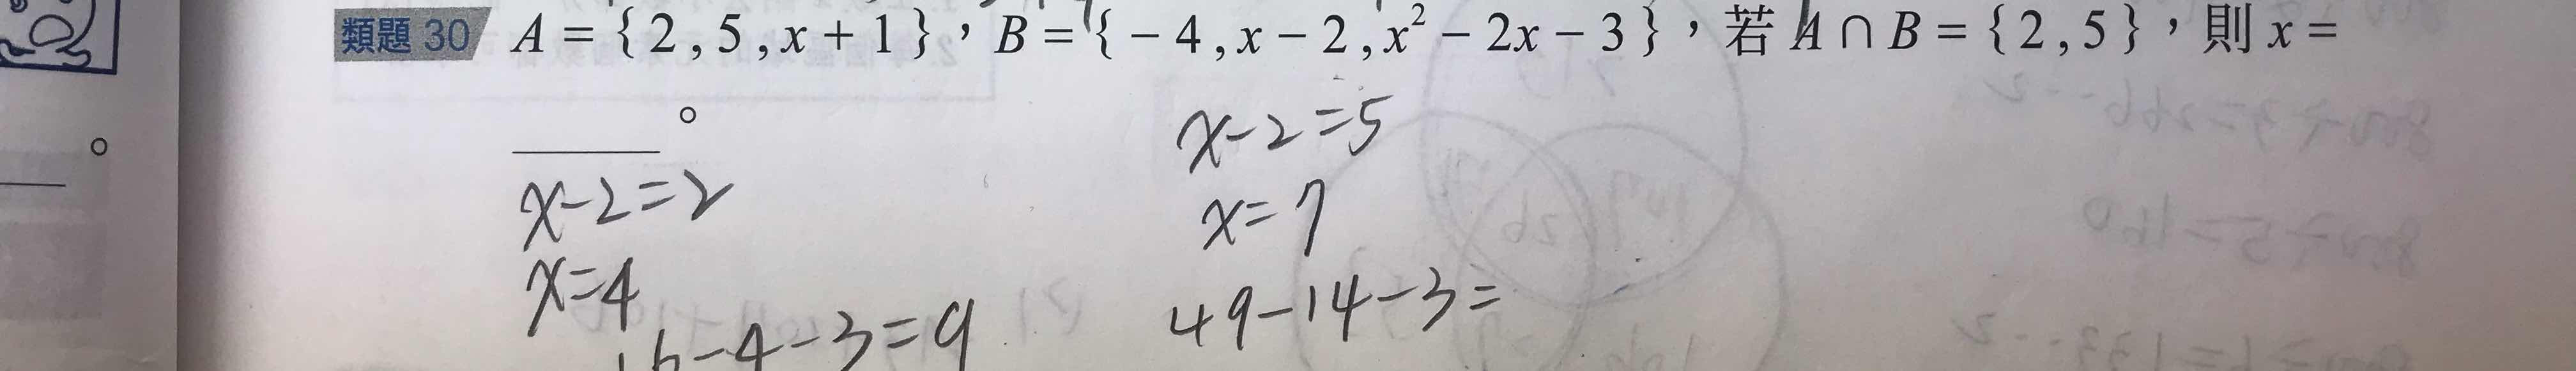 類題 30 A = { 2 , 5 , x + 1 } , B = { − 4 , x − 2 , x² − 2x − 3 } , 若 A ∩ B = { 2 , 5 } , 則 x =
______ 。
x-2=2
x=4
16-4-3=9
x-2=5
x=7
49-14-3=